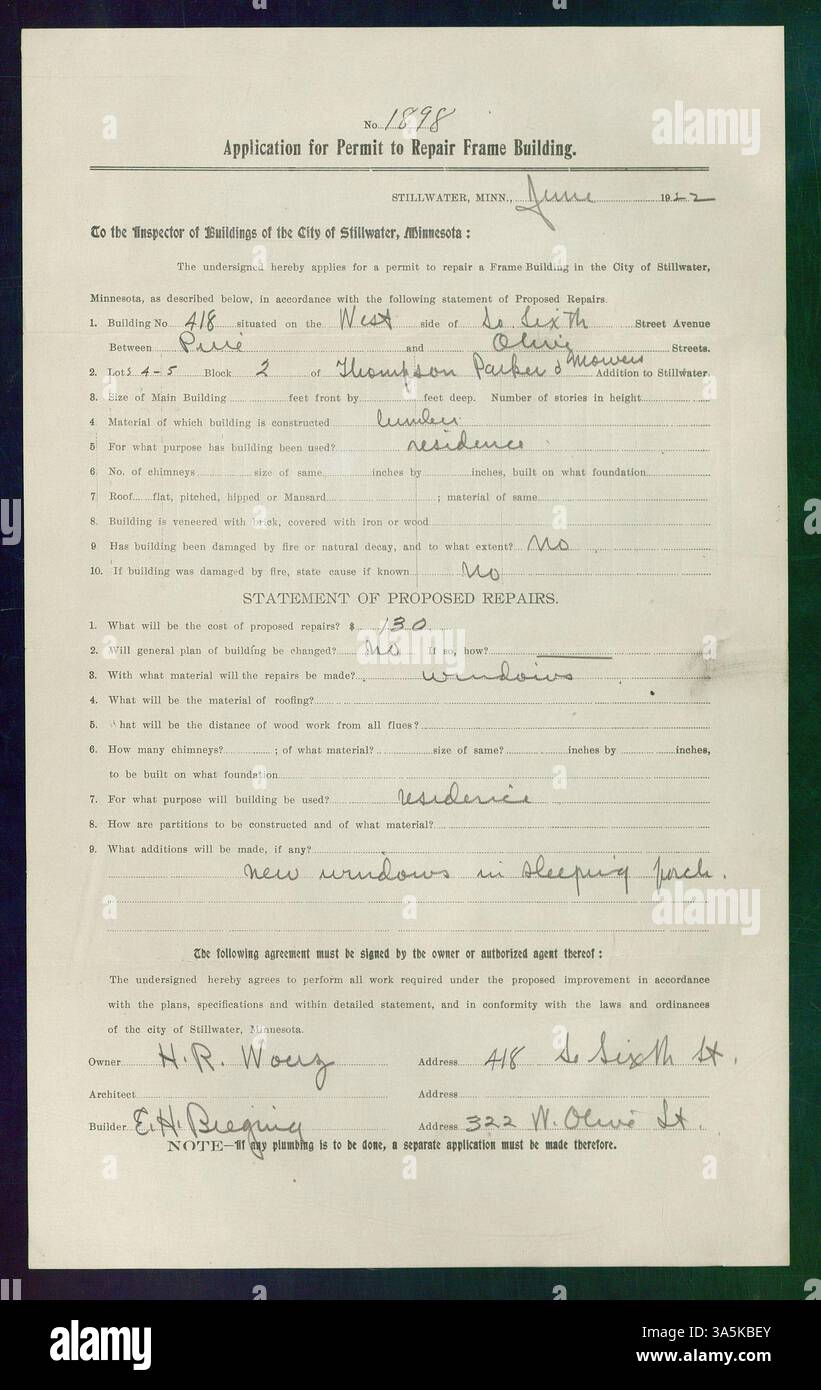 No. 1898
Application for Permit to Repair Frame Building.
STILLWATER, MINN., June 1922
To the Inspector of Buildings of the City of Stillwater, Minnesota:
The undersigned hereby applies for a permit to repair a Frame Building in the City of Stillwater,
Minnesota, as described below, in accordance with the following statement of Proposed Repairs.
1. Building No 418 situated on the West side of So. Sixth Street Avenue
Between Pine and Olive Streets.
2. Lots 4-5 Block 2 of Thompson Parker & Mowers Addition to Stillwater.
3. Size of Main Building feet front by feet deep. Number of stories in height
4 Material of which building is constructed lumber
5 For what purpose has building been used? residence
6. No. of chimneys size of same inches by inches, built on what foundation
7 Roof flat, pitched, hipped or Mansard ; material of same
8. Building is veneered with brick, covered with iron or wood
9 Has building been damaged by fire or natural decay, and to what extent? No
10. If building was damaged by fire, state cause if known No
STATEMENT OF PROPOSED REPAIRS.
1. What will be the cost of proposed repairs? $ 130
2. Will general plan of building be changed? No If so, how?
3. With what material will the repairs be made? windows
4. What will be the material of roofing?
5. hat will be the distance of wood work from all flues?
6. How many chimneys? ; of what material? size of same? inches by inches,
to be built on what foundation
7. For what purpose will building be used? residence
8. How are partitions to be constructed and of what material?
9. What additions will be made, if any?
new windows in sleeping porch.
The following agreement must be signed by the owner or authorized agent thereof:
The undersigned hereby agrees to perform all work required under the proposed improvement in accordance
with the plans, specifications and within detailed statement, and in conformity with the laws and ordinances
of the city of Stillwater, Minnesota.
Owner H. R. Address 418 So Sixth St.
Architect Address
Builder E. H. Address 322 W. Olive St.
NOTE—If any plumbing is to be done, a separate application must be made therefore.
alamy
Image ID: 3A5KBEY
www.alamy.com